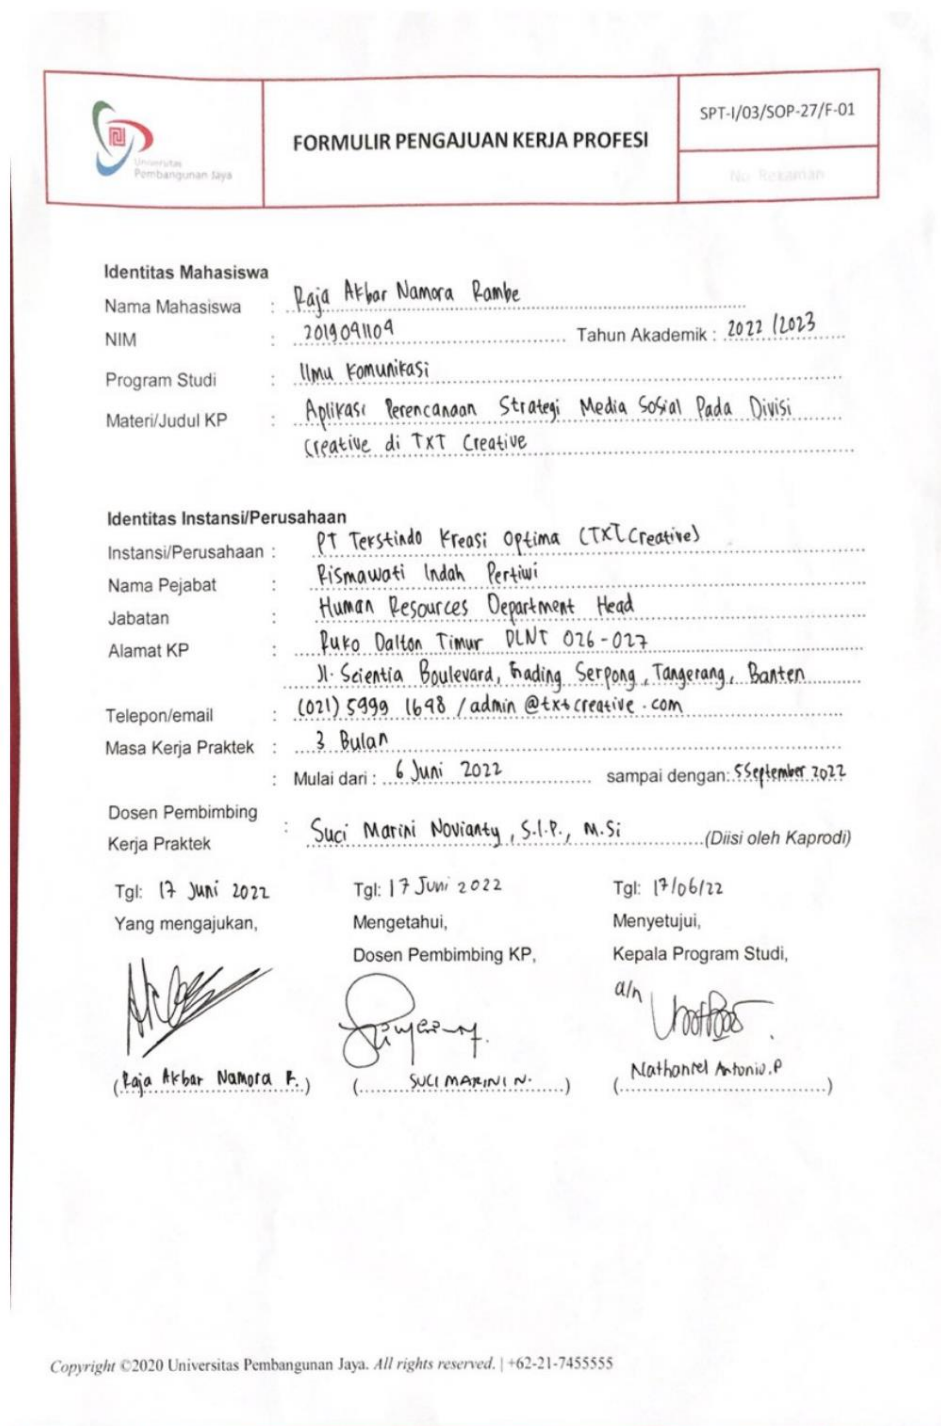 Universitas
Pembangunan Jaya
FORMULIR PENGAJUAN KERJA PROFESI
SPT-I/03/SOP-27/F-01
No. Rekaman
Identitas Mahasiswa
Nama Mahasiswa : Raja Akbar Namora Rambe
NIM : 2019041104 Tahun Akademik : 2022/2023
Program Studi : Ilmu Komunikasi
Materi/Judul KP : Aplikasi Perencanaan Strategi Media Sosial Pada Divisi
Creative di TXT Creative
Identitas Instansi/Perusahaan
Instansi/Perusahaan : PT Tekstindo Kreasi Optima (TXT Creative)
Nama Pejabat : Rismawati Indah Pertiwi
Jabatan : Human Resources Department Head
Alamat KP : Ruko Dalton Timur DLNT 026-027
Jl. Scientia Boulevard, Gading Serpong, Tangerang, Banten
Telepon/email : (021) 5999 1698 / admin@txtcreative.com
Masa Kerja Praktek : 3 Bulan
: Mulai dari : 6 Juni 2022 sampai dengan: 5 September 2022
Dosen Pembimbing
Kerja Praktek : Suci Marini Novianty, S.I.P., M.Si (Diisi oleh Kaprodi)
Tgl: 17 Juni 2022 Tgl: 17 Juni 2022 Tgl: 17/06/22
Yang mengajukan, Mengetahui, Menyetujui,
Dosen Pembimbing KP, Kepala Program Studi,
a/n
(Raja Akbar Namora R.) (SUCI MARINI N.) (Nathaniel Antonio.P)
Copyright ©2020 Universitas Pembangunan Jaya. All rights reserved. | +62-21-7455555